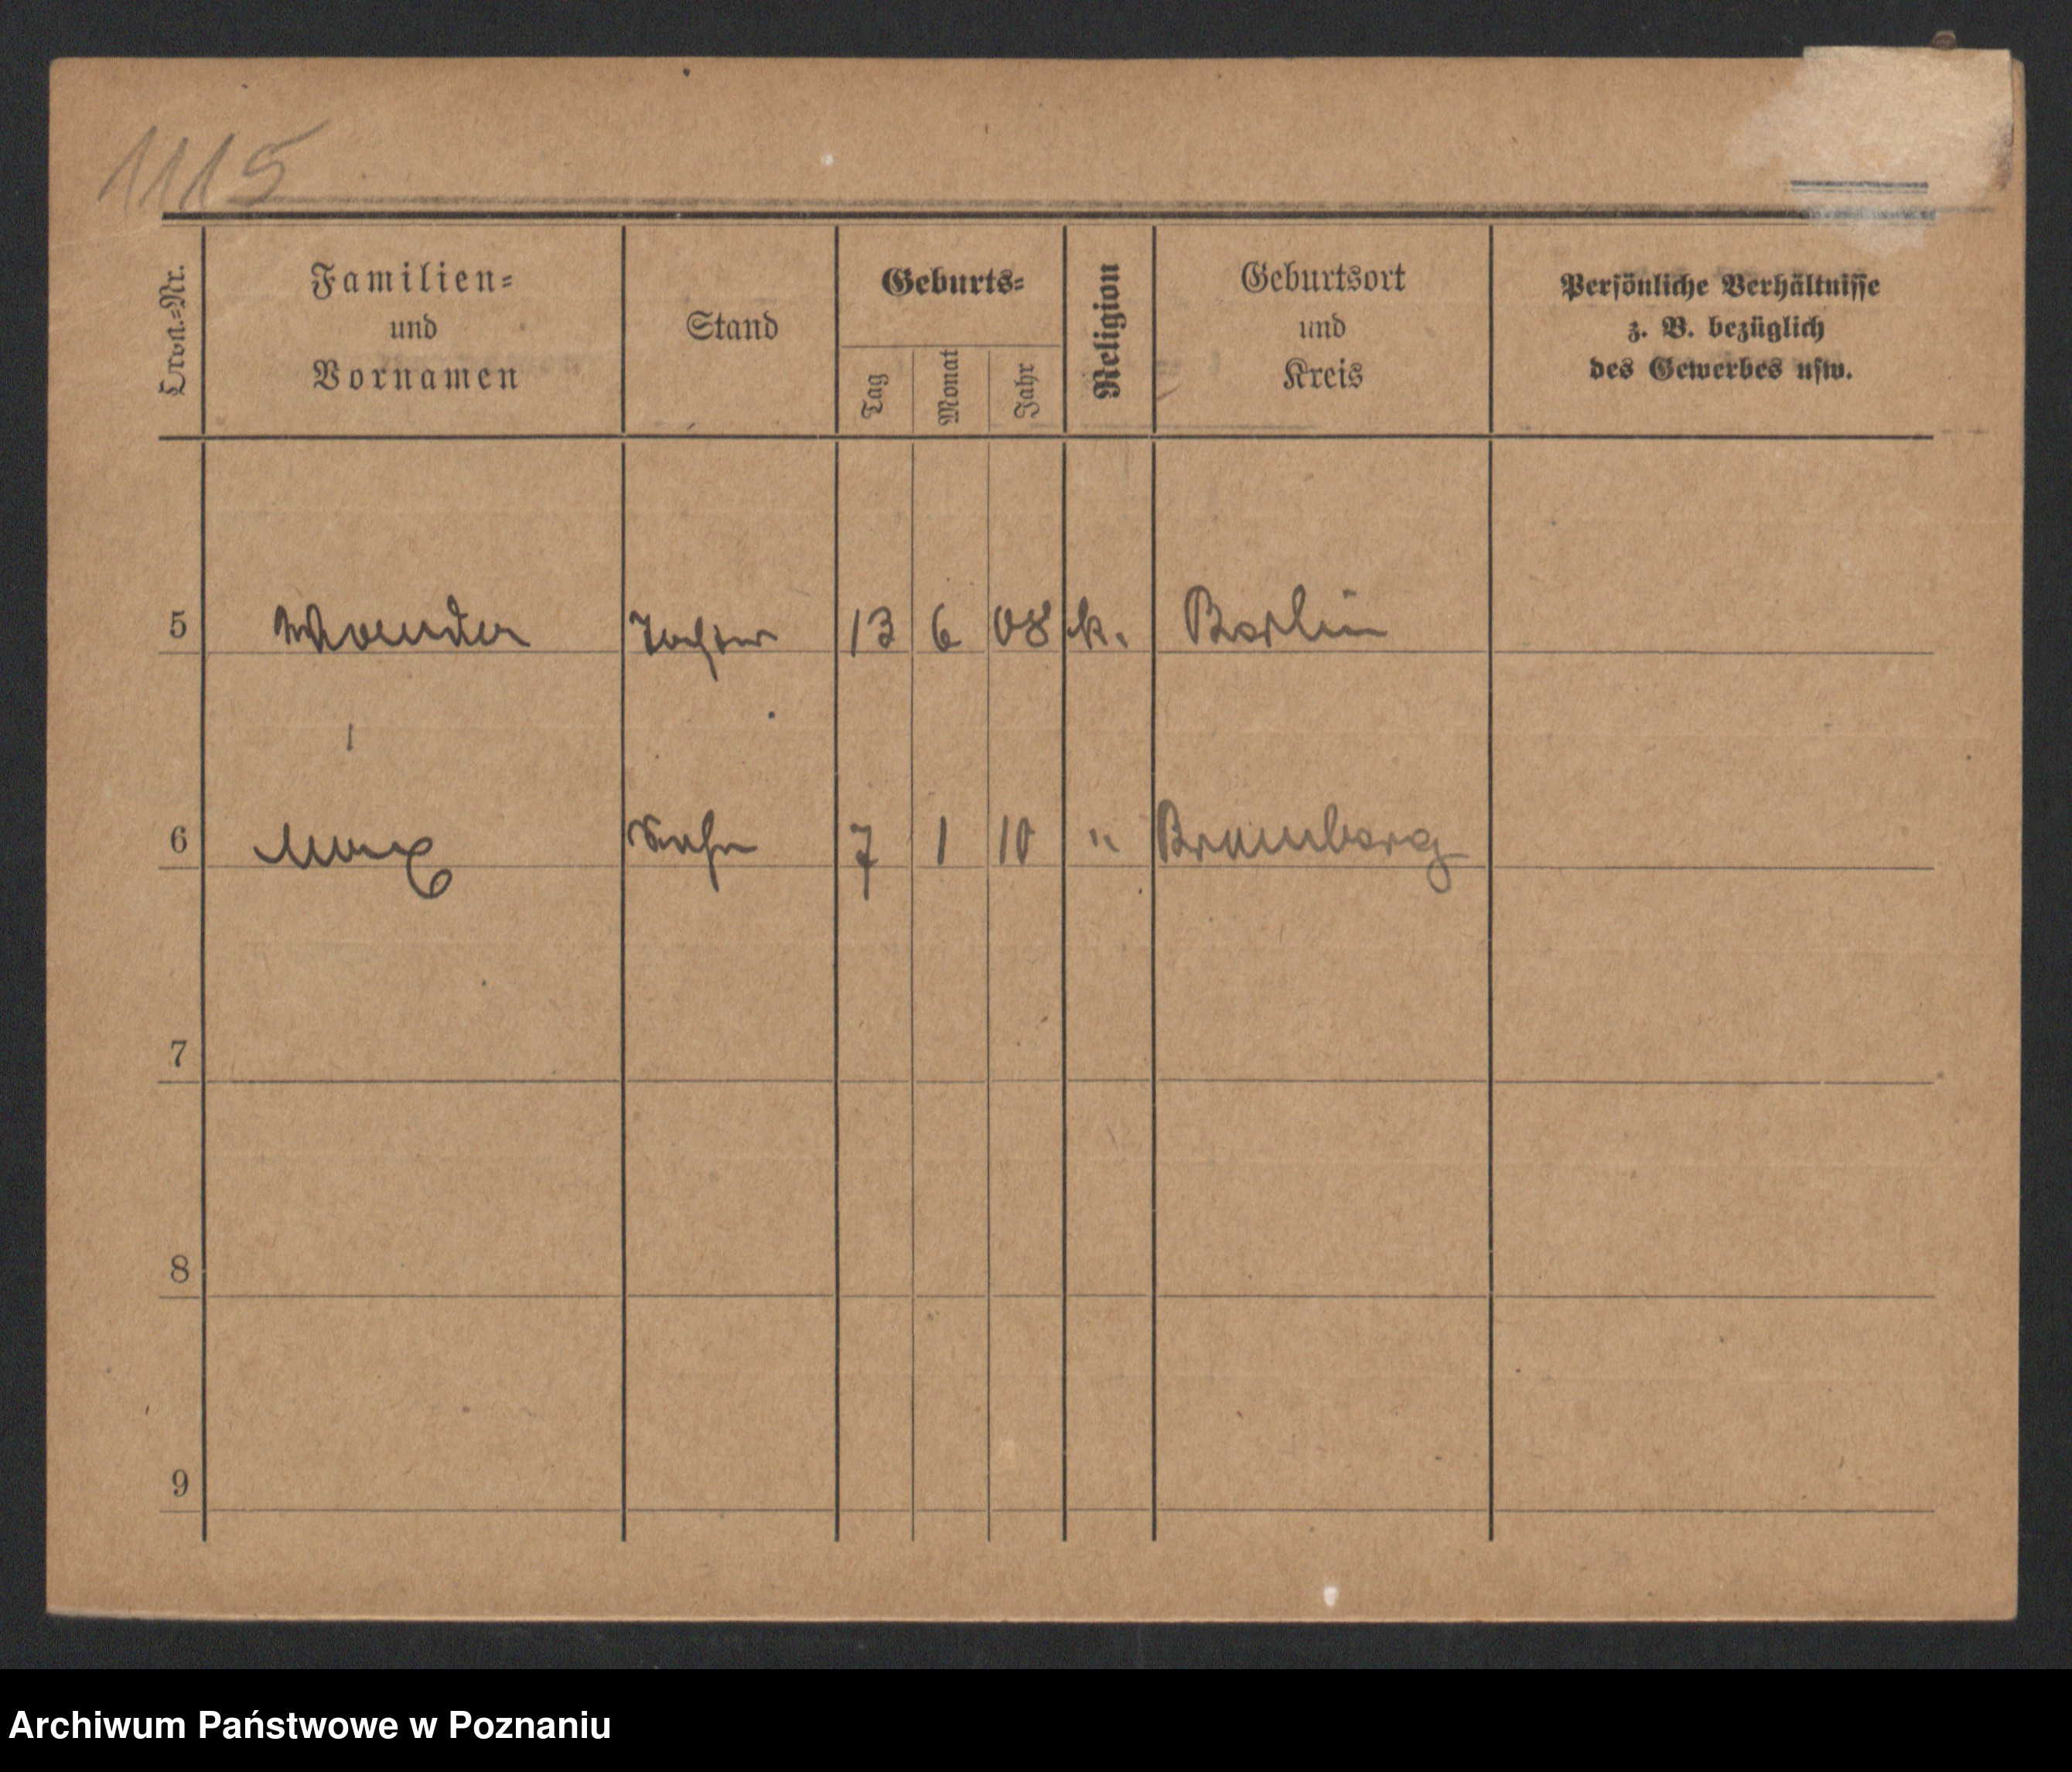 1115
Ord.-Nr.
Familien-
und
Vornamen
Stand
Geburts-
Tag
Monat
Jahr
Religion
Geburtsort
und
Kreis
Persönliche Verhältnisse
z. B. bezüglich
des Gewerbes usw.
5 Tochter 13 6 08 k. Berlin
6 Max Sohn 7 1 10 " Bromberg
7
8
9
Archiwum Państwowe w Poznaniu